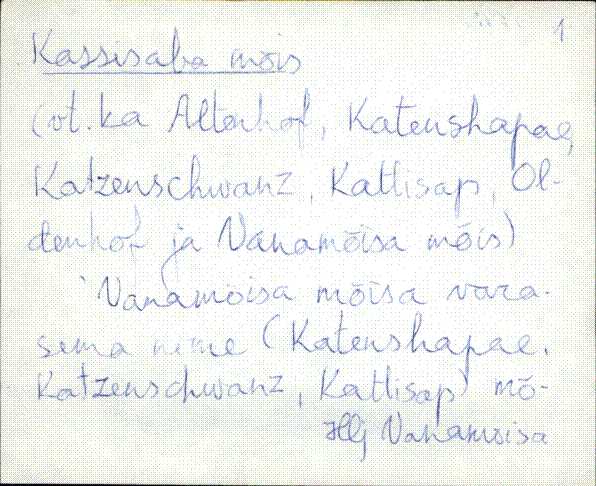 1
Kassisaba mõis
(vt. ka Altenhof, Katenshapae,
Katzenschwanz, Kattisap, Ol-
denhof ja Vanamõisa mõis)
Vanamõisa mõisa vara-
sema nime (Katenshapae.
Katzenschwanz, Kattisap) mõ-
Hlj Vanamõisa